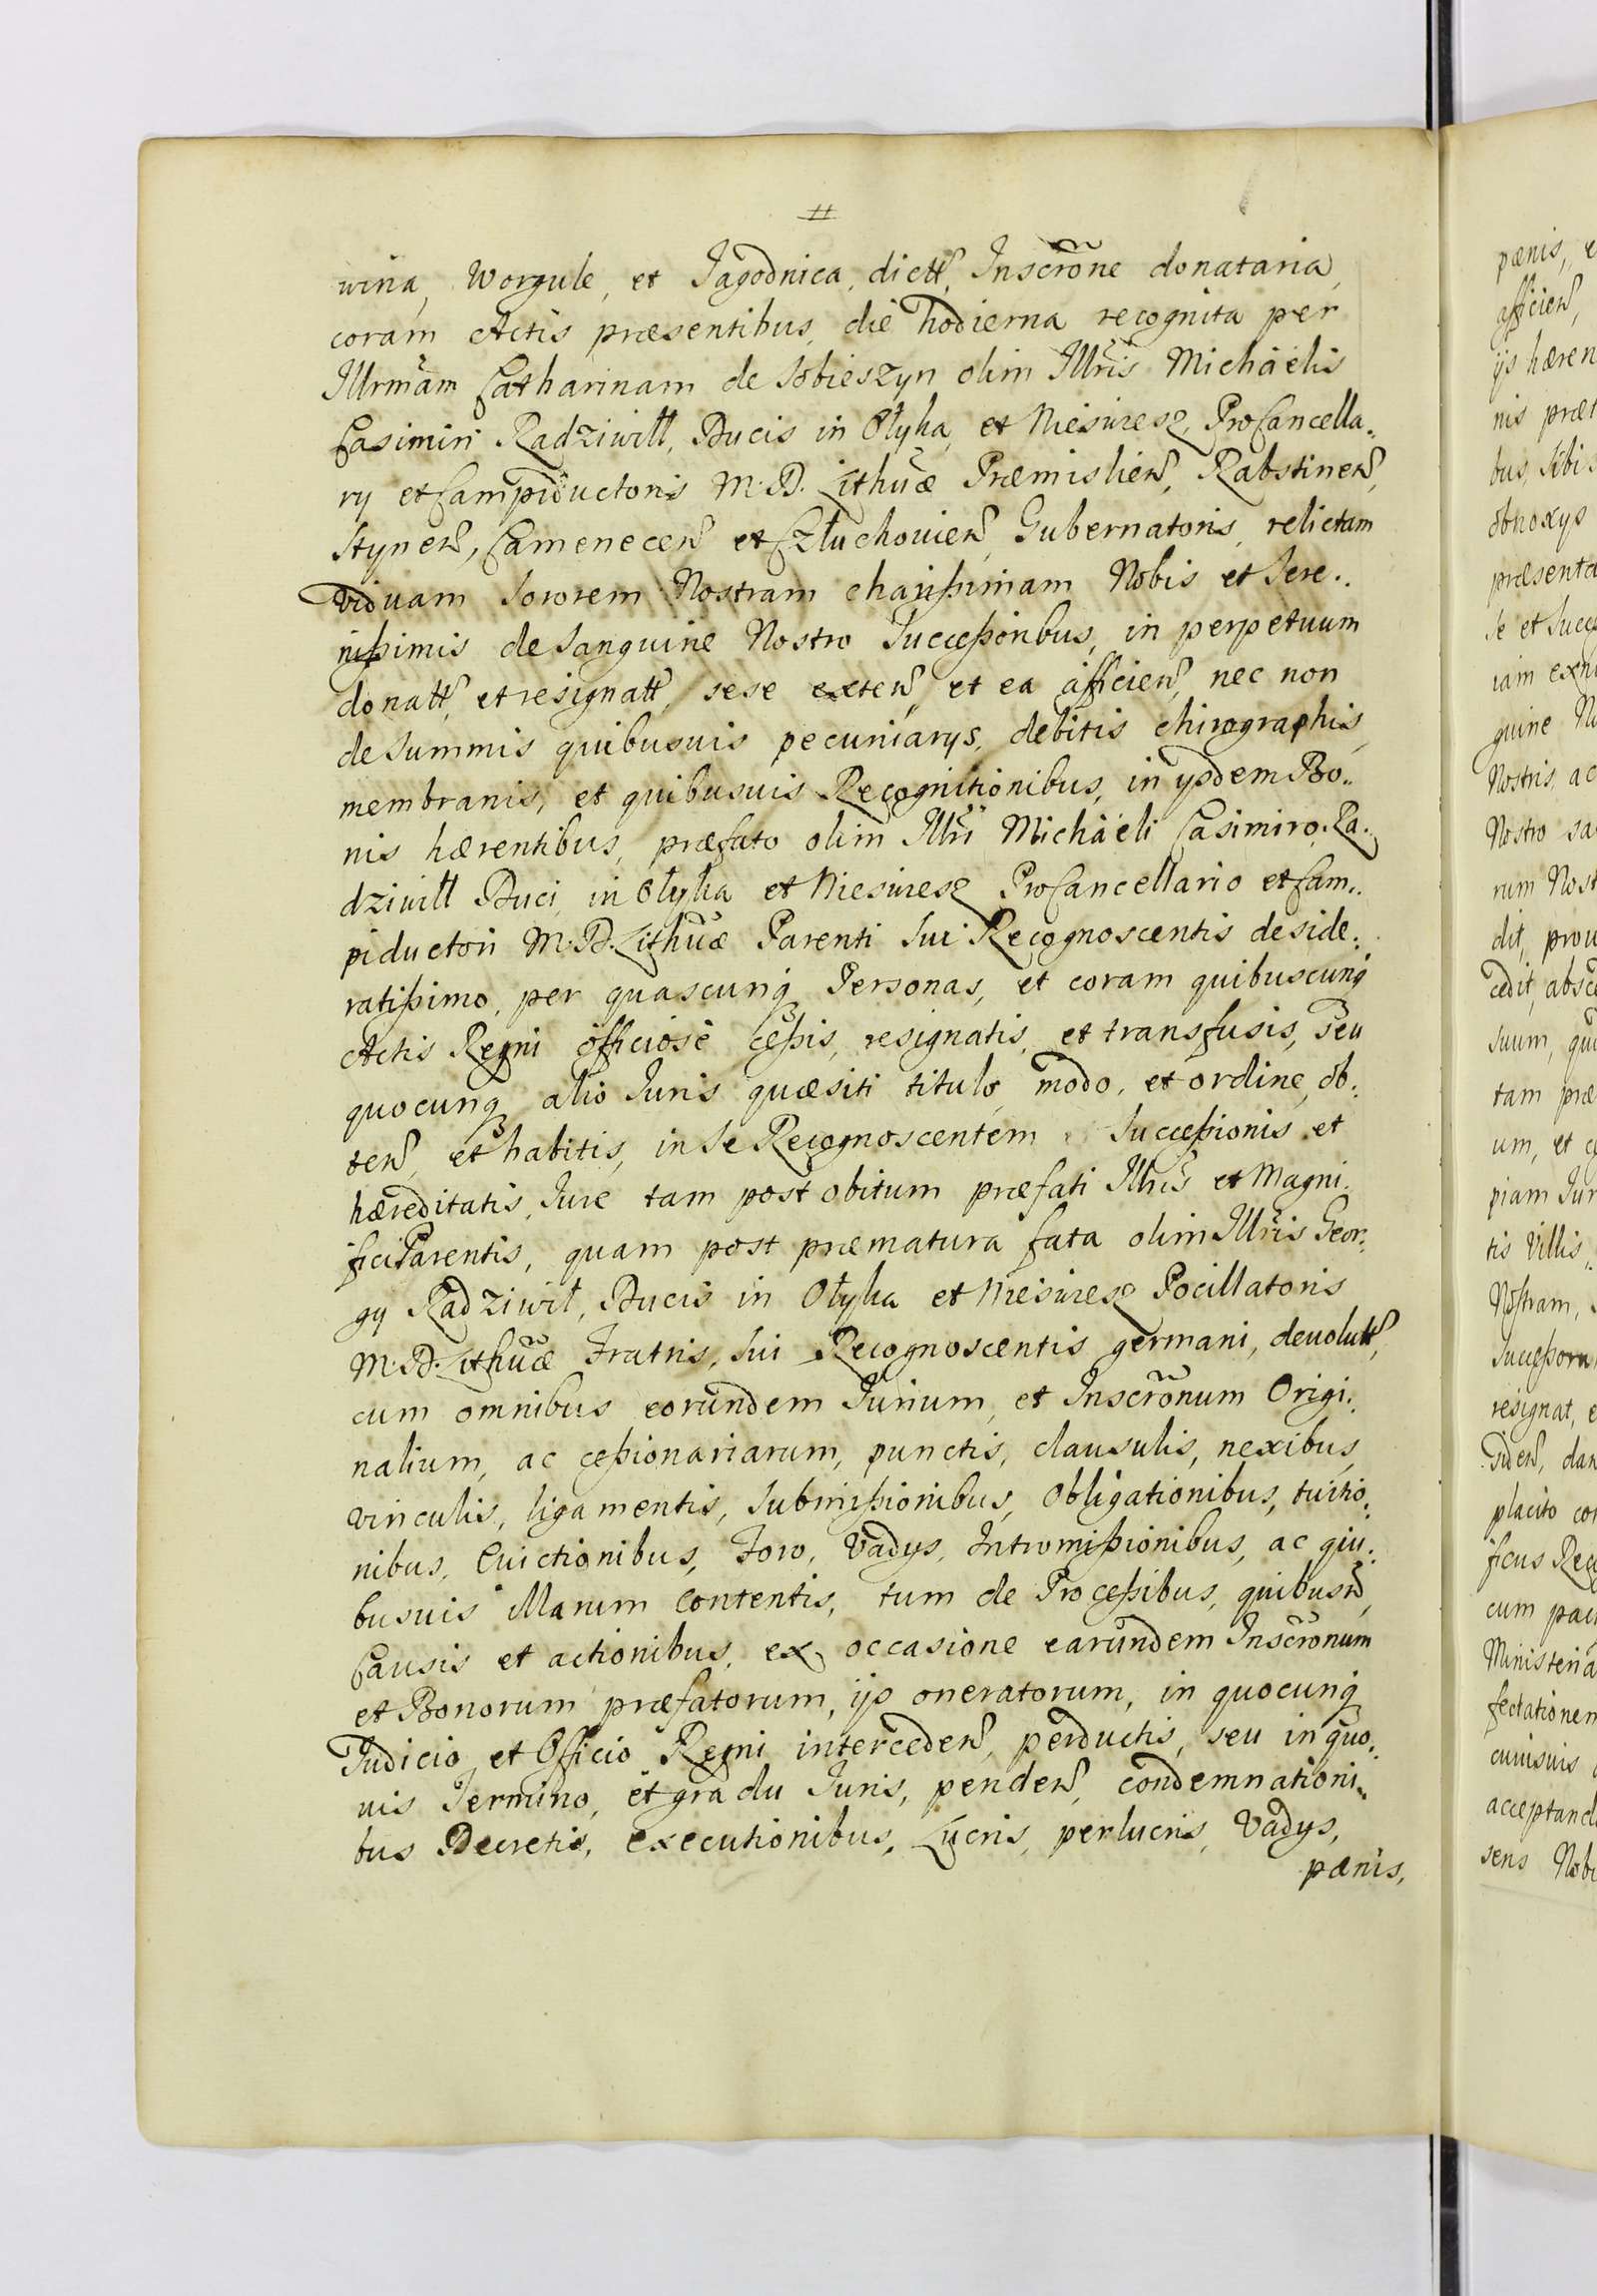 wina, Worgule, et Jagodnica, dictt, Inscrõne donataria,
coram Actis præsentibus, die hodierna recognita per
Illrmam Catharinam de Sobieszyn olim Illris Michaelis
Casimiri Radziwill, Ducis in Ołyka, et Nieswiesz, ProCancella-
ry et Campiductoris M. D. Lithuæ Præmislien, Rabstinen,
Stynen, Camenecen et Człuchovien, Gubernatoris, relictam
viduam Sororem Nostram charissimam Nobis et Sere-
nissimis de Sanguine Nostro Successoribus, in perpetuum
donatt, et resignatt, sese exten, et ea afficien, nec non
de Summis quibusuis pecuniarys, debitis chirographis,
membranis, et quibusuis Recognitionibus, in ysdem Bo-
nis hærentibus, præfato olim Illri Michaeli Casimiro Ra-
dziwill Duci, in Ołyka et Nieswiesz ProCancellario et Cam-
piductori M. D. Lithuæ Parenti Sui Recognoscentis deside-
ratissimo, per quascunq Personas, et coram quibuscunq
Actis Regni officiose cessis, resignatis, et transfusis, seu
quocunq alio Juris quæsiti titulo, modo, et ordine, ob-
ten, et habitis, in Se Recognoscentem Successionis et
hæreditatis, Jure tam post obitum præfati Illris et Magni-
fici Parentis, quam post præmatura fata olim Illris Geor-
gy Radziwił, Ducis in Ołyka et Nieswiesz Pocillatoris
M. D. Lithuæ Fratris, Sui Recognoscentis germani, deuolutt,
cum omnibus eorundem Jurium, et Inscrõnum Origi-
nalium, ac cessionariarum, punctis, clausulis, nexibus,
vinculis, ligamentis, Submissionibus, Obligationibus, tuitio-
nibus, Euictionibus, Foro, Vadys, Intromissionibus, ac qui-
busuis illarum contentis, tum de Processibus, quibusvis,
Causis et actionibus, ex occasione earundem Inscrõnum
et Bonorum præfatorum, ijs oneratorum, in quocunq
Judicio et Officio Regni interceden, perductis, seu in quo-
uis Termino, et gradu Juris, penden, condemnationi-
bus Decretis, executionibus, Lucris, perlucris, Vadys,
pænis,
pænis,
afficien,
ijs hæren
nis præt
bus, Sibi
obnoxys
præsenta
Se et Succe
iam exnu
guine No
Nostris, ac
Nostro sa
rum Nost
dit, prou
cedit, absce
Suum, qu
tam præ
um, et c
piam Jur
tis Villis,
Nostram,
Successoru
resignat, e
dan
placito con
ficus Rec
cum pac
Ministeria
fectationem
cuiusuis
acceptand
sens Nobi